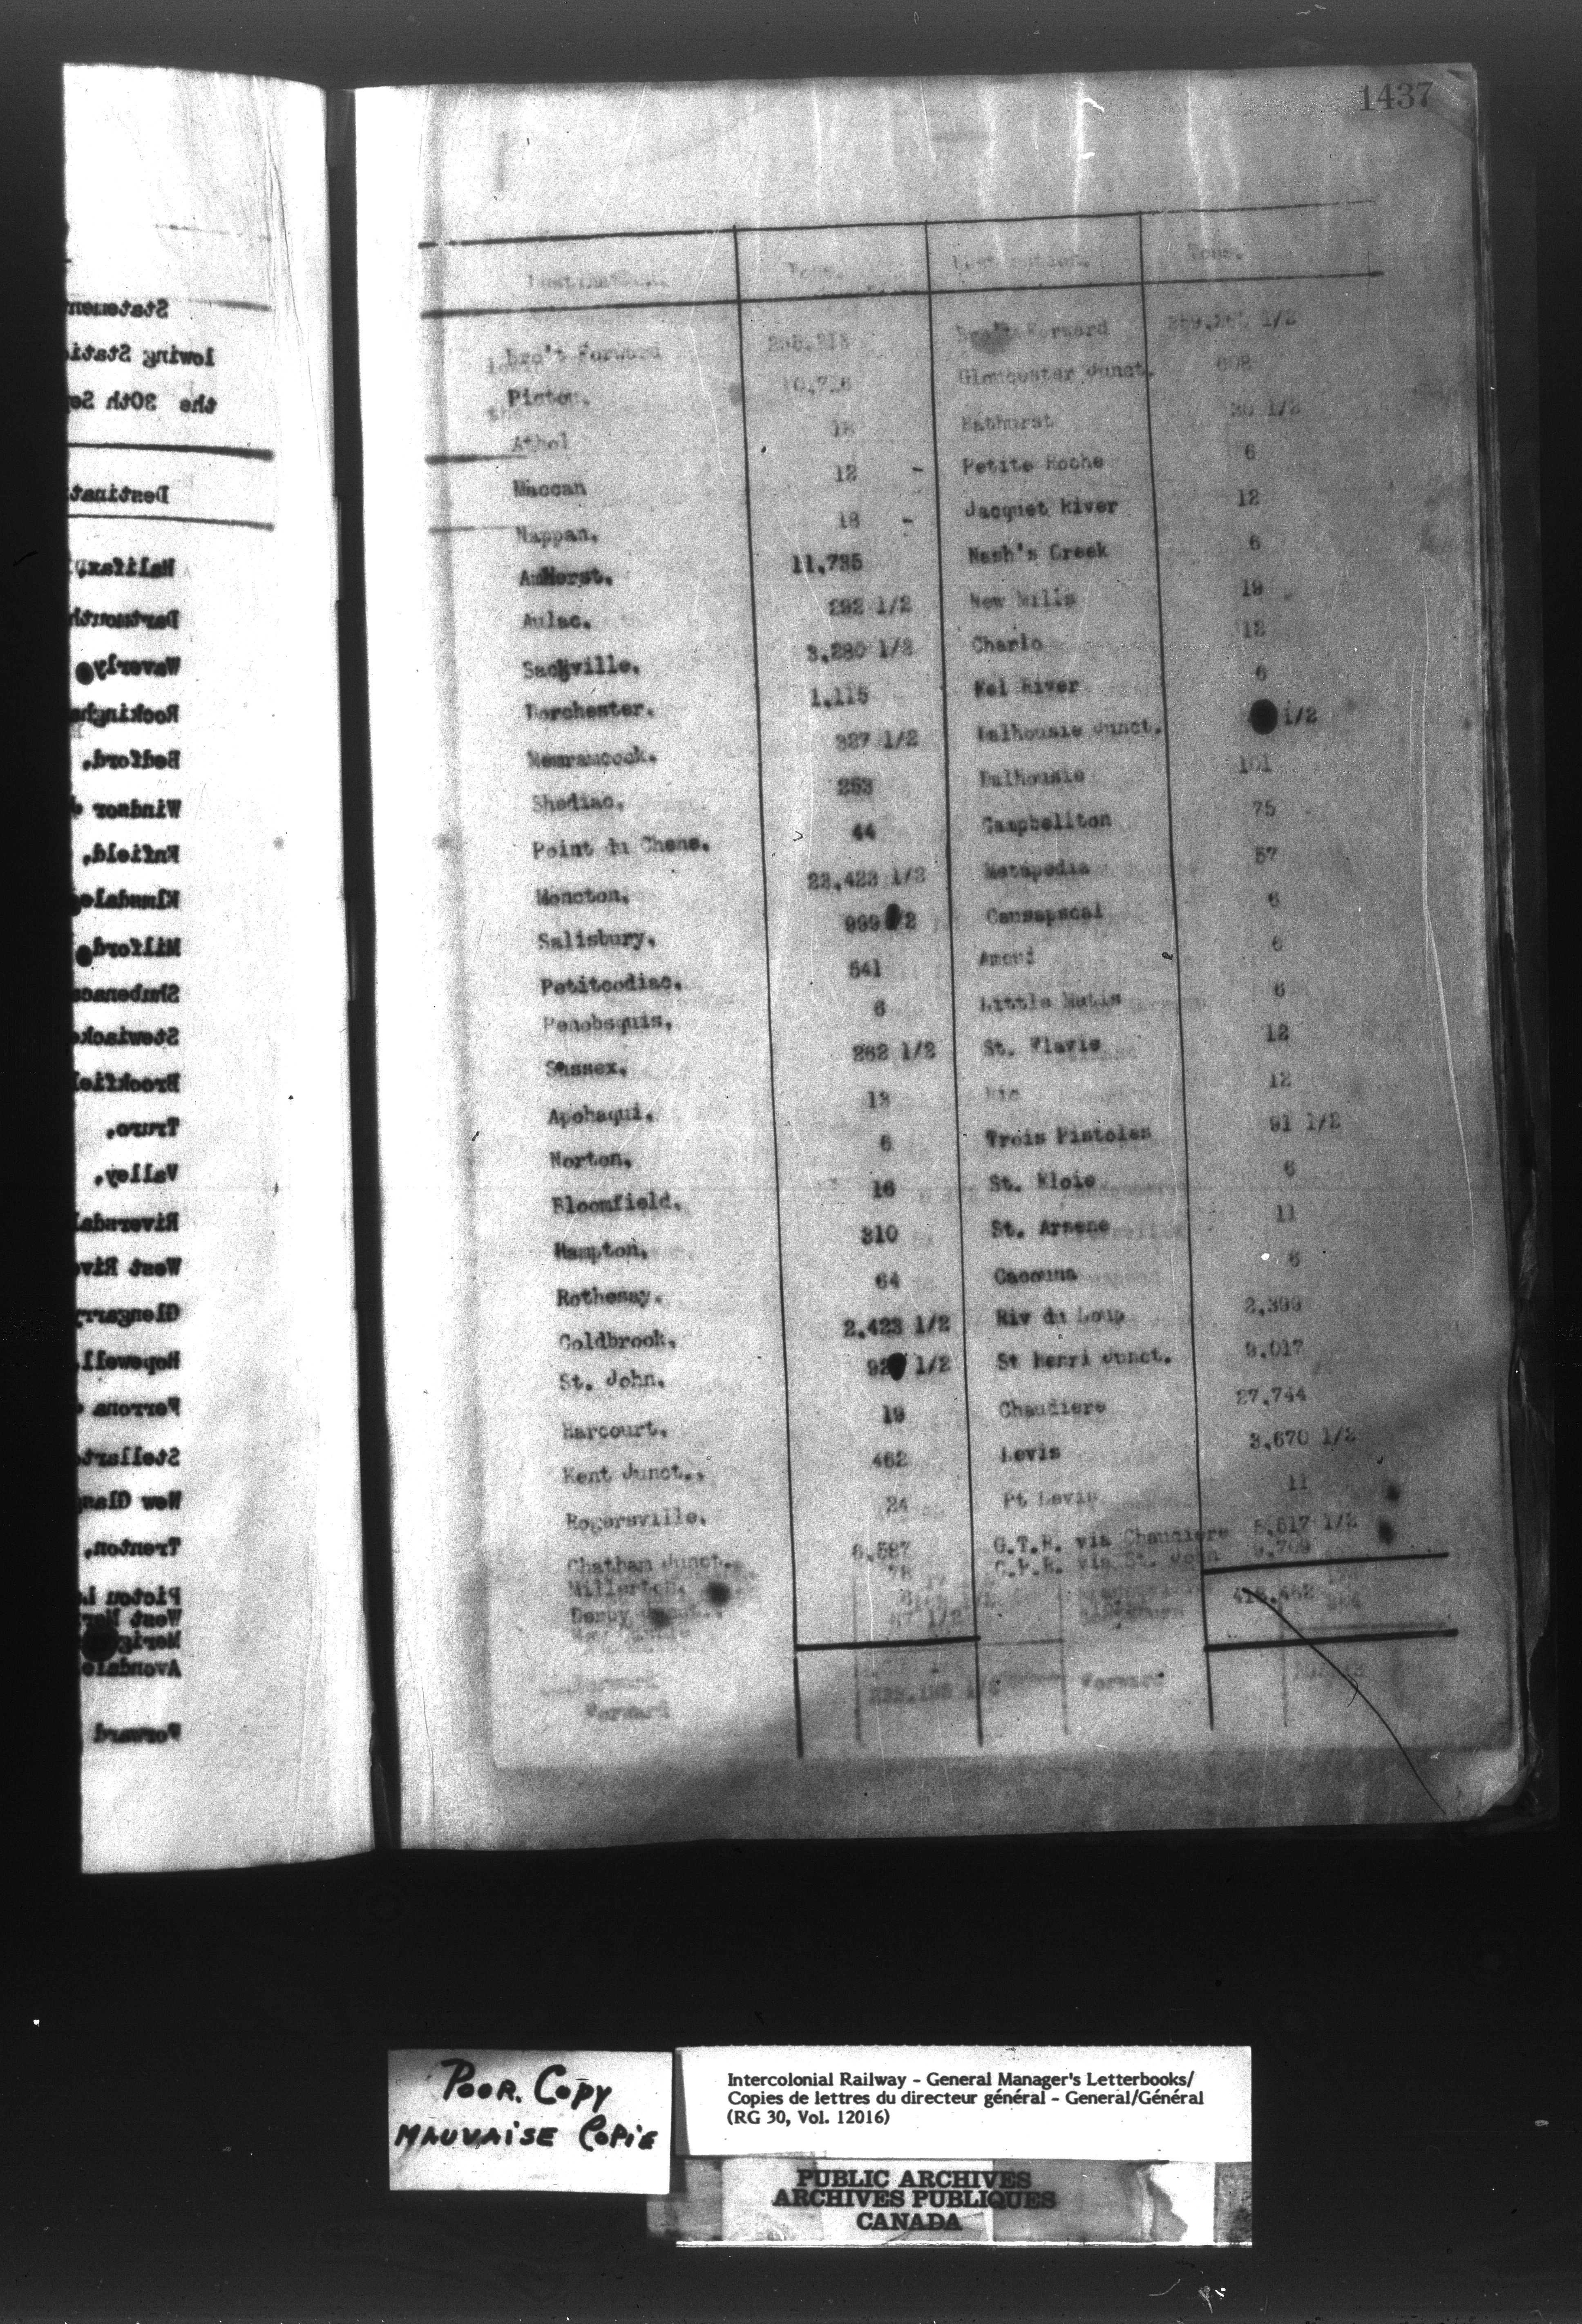 1437
Statemen
lowing Stati
the 30th Se
Destinati
Halifax.
Dartmouth
Waverly
Rockingha
Bedford.
Windsor
Enfield.
Elmsdale
Milford
Shubenaca
Stewiacke
Brookfiel
Truro.
Valley.
Riversdal
West Rive
Glengarry
Hopewell
Ferrona
Stellarto
New Glasg
Trenton.
Pictou L
West Mer
Merig
Avondale
Forward
Destination. Tons. Destination. Tons.
Bro't Forward Bro't Forward 1/2
Pictou. Gloucester Junct. 608
Athol 18 Bathurst 30 1/2
Maccan 12 - Petite Roche 6
Nappan. 18 - Jacquet River 12
Amherst. 11.735 Nash's Creek 6
Aulac. 292 1/2 New Mills 19
Sackville. 3.280 1/2 Charlo 12
Dorchester. 1.115 Eel River 6
Memramcook. 327 1/2 Dalhousie Junct. 1/2
Shediac. 253 Dalhousie 101
Point du Chene. 44 Campbellton 75
Moncton. 23.423 1/2 Metapedia 57
Salisbury. 999 /2 Causapscal 6
Petitcodiac. 541 Amqui 6
Penobsquis. 6 Little Metis 6
Sussex. 262 1/2 St. Flavie 12
Apohaqui. 12 Bic 12
Norton. 6 Trois Pistoles 91 1/2
Bloomfield. 16 St. Eloie 6
Hampton. 310 St. Arsene 11
Rothesay. 64 Cacouna 6
Coldbrook. 2.423 1/2 Riv du Loup 2.399
St. John. 92 1/2 St Henri Junct. 9.017
Harcourt. 19 Chaudiere 27.744
Kent Junct.. 462 Levis 3.670 1/2
Rogersville. 24 Pt Levis 11
Chatham Junct. 6.587 G.T.R. via Chaudiere 5.517 1/2
Millerton. 78 C.P.R. via St. John 9.709
Derby
Forward Forward
POOR. COPY
MAUVAISE COPIE
Intercolonial Railway - General Manager's Letterbooks/
Copies de lettres du directeur général - General/Général
(RG 30, Vol. 12016)
PUBLIC ARCHIVES
ARCHIVES PUBLIQUES
CANADA